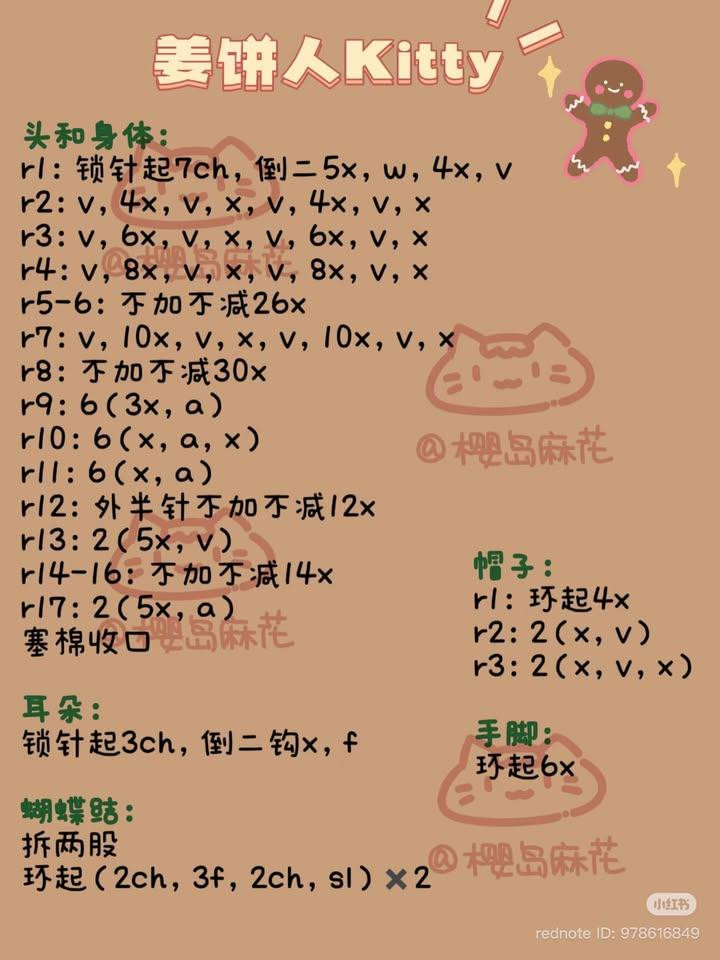 姜饼人Kitty
头和身体:
r1: 锁针起7ch, 倒二5x, w, 4x, v
r2: v, 4x, v, x, v, 4x, v, x
r3: v, 6x, v, x, v, 6x, v, x
r4: v, 8x, v, x, v, 8x, v, x
r5-6: 不加不减26x
r7: v, 10x, v, x, v, 10x, v, x
r8: 不加不减30x
r9: 6(3x, a)
r10: 6(x, a, x)
r11: 6(x, a)
r12: 外半针不加不减12x
r13: 2(5x, v)
r14-16: 不加不减14x
r17: 2(5x, a)
塞棉收口
耳朵:
锁针起3ch, 倒二钩x, f
蝴蝶结:
拆两股
环起(2ch, 3f, 2ch, sl)✖2
帽子:
r1: 环起4x
r2: 2(x, v)
r3: 2(x, v, x)
手脚:
环起6x
@樱岛麻花
@樱岛麻花
@樱岛麻花
@樱岛麻花
小红书
rednote ID: 978616849